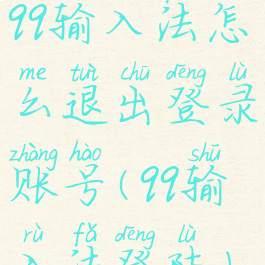 99输入法怎
me tuì chū dēng lù
么退出登录
zhàng hào shū
账号(99输
rù fǎ dēng lù
入法登陆)